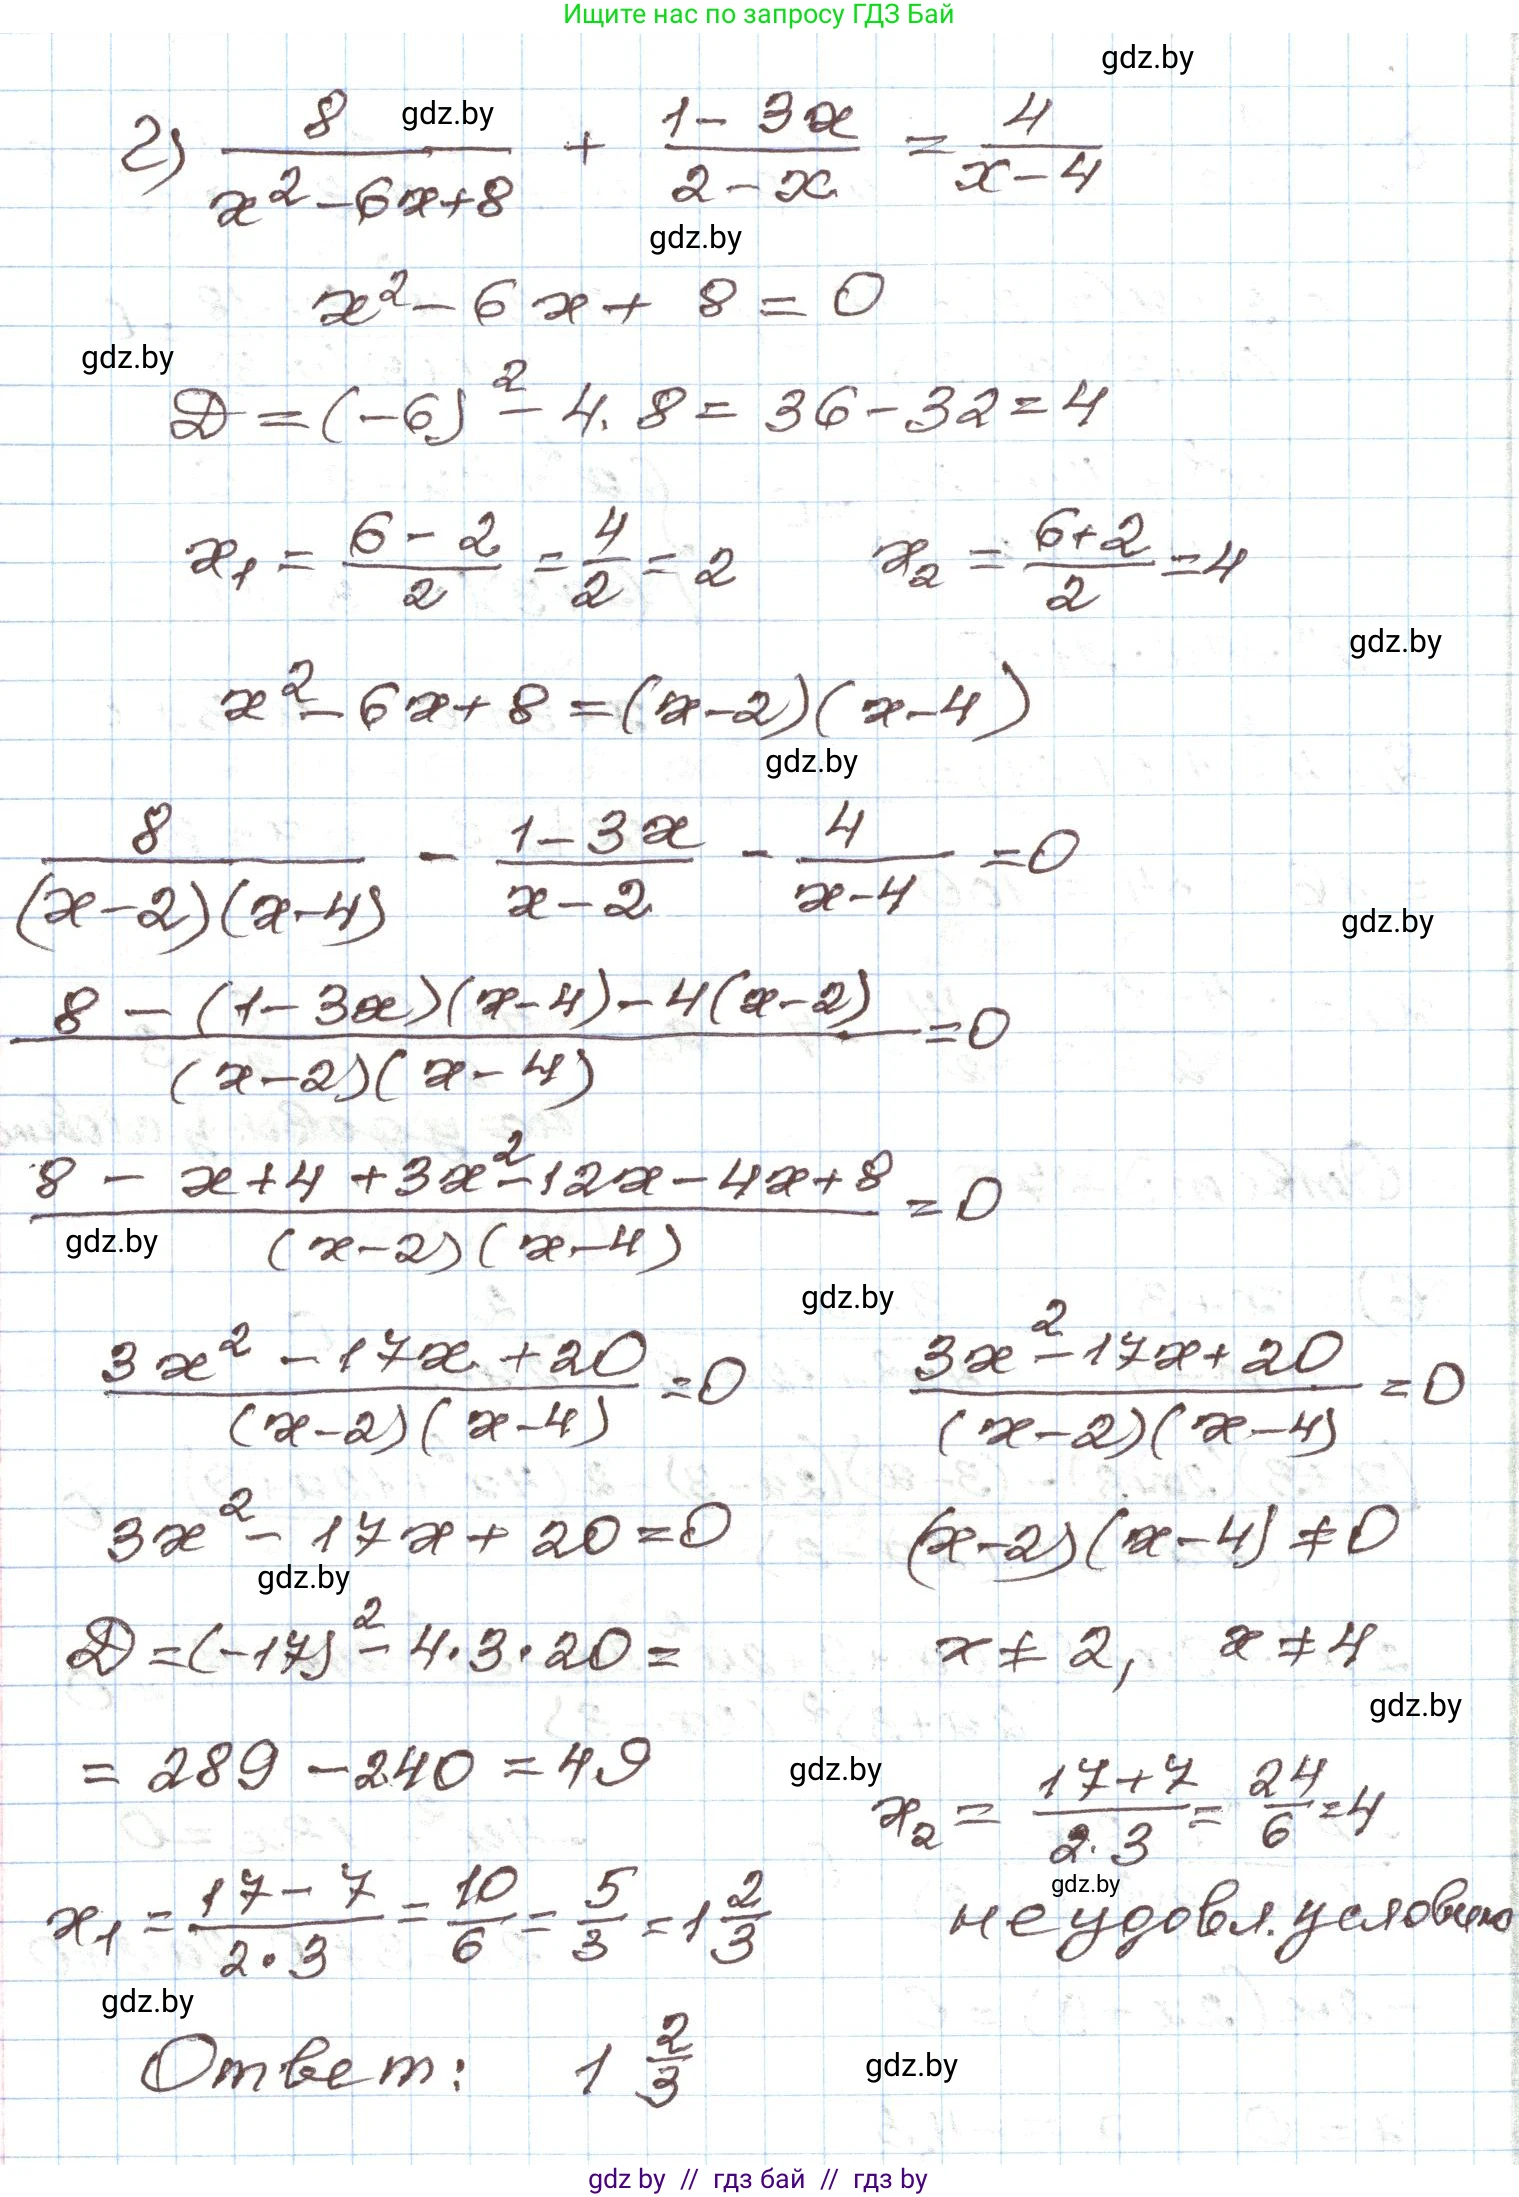 Ищите нас по запросу ГДЗ Бай
gdz.by
г) 8/(x² - 6x + 8) + (1 - 3x)/(2 - x) = 4/(x - 4)
gdz.by
gdz.by
x² - 6x + 8 = 0
gdz.by
D = (-6)² - 4 · 8 = 36 - 32 = 4
x₁ = (6 - 2)/2 = 4/2 = 2 x₂ = (6 + 2)/2 = 4
gdz.by
x² - 6x + 8 = (x - 2)(x - 4)
gdz.by
8/((x - 2)(x - 4)) - (1 - 3x)/(x - 2) - 4/(x - 4) = 0
gdz.by
(8 - (1 - 3x)(x - 4) - 4(x - 2))/((x - 2)(x - 4)) = 0
(8 - x + 4 + 3x² - 12x - 4x + 8)/((x - 2)(x - 4)) = 0
gdz.by
gdz.by
(3x² - 17x + 20)/((x - 2)(x - 4)) = 0 (3x² - 17x + 20)/((x - 2)(x - 4)) = 0
3x² - 17x + 20 = 0 (x - 2)(x - 4) ≠ 0
gdz.by
D = (-17)² - 4 · 3 · 20 = x ≠ 2, x ≠ 4
gdz.by
= 289 - 240 = 49
gdz.by
x₂ = (17 + 7)/(2 · 3) = 24/6 = 4
gdz.by
x₁ = (17 - 7)/(2 · 3) = 10/6 = 5/3 = 1 2/3 не удовл. условию
gdz.by
Ответ: 1 2/3
gdz.by
gdz by // гдз бай // гдз by